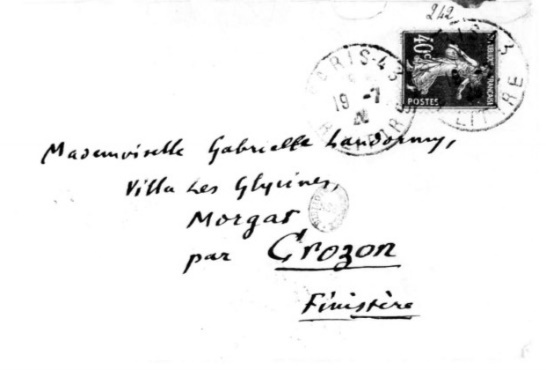 242
PARIS-43
19 -7
40c
POSTES
3
LITTRE
Mademoiselle Gabrielle Landormy,
Villa Les Glycines,
Morgat
par Crozon
Finistère